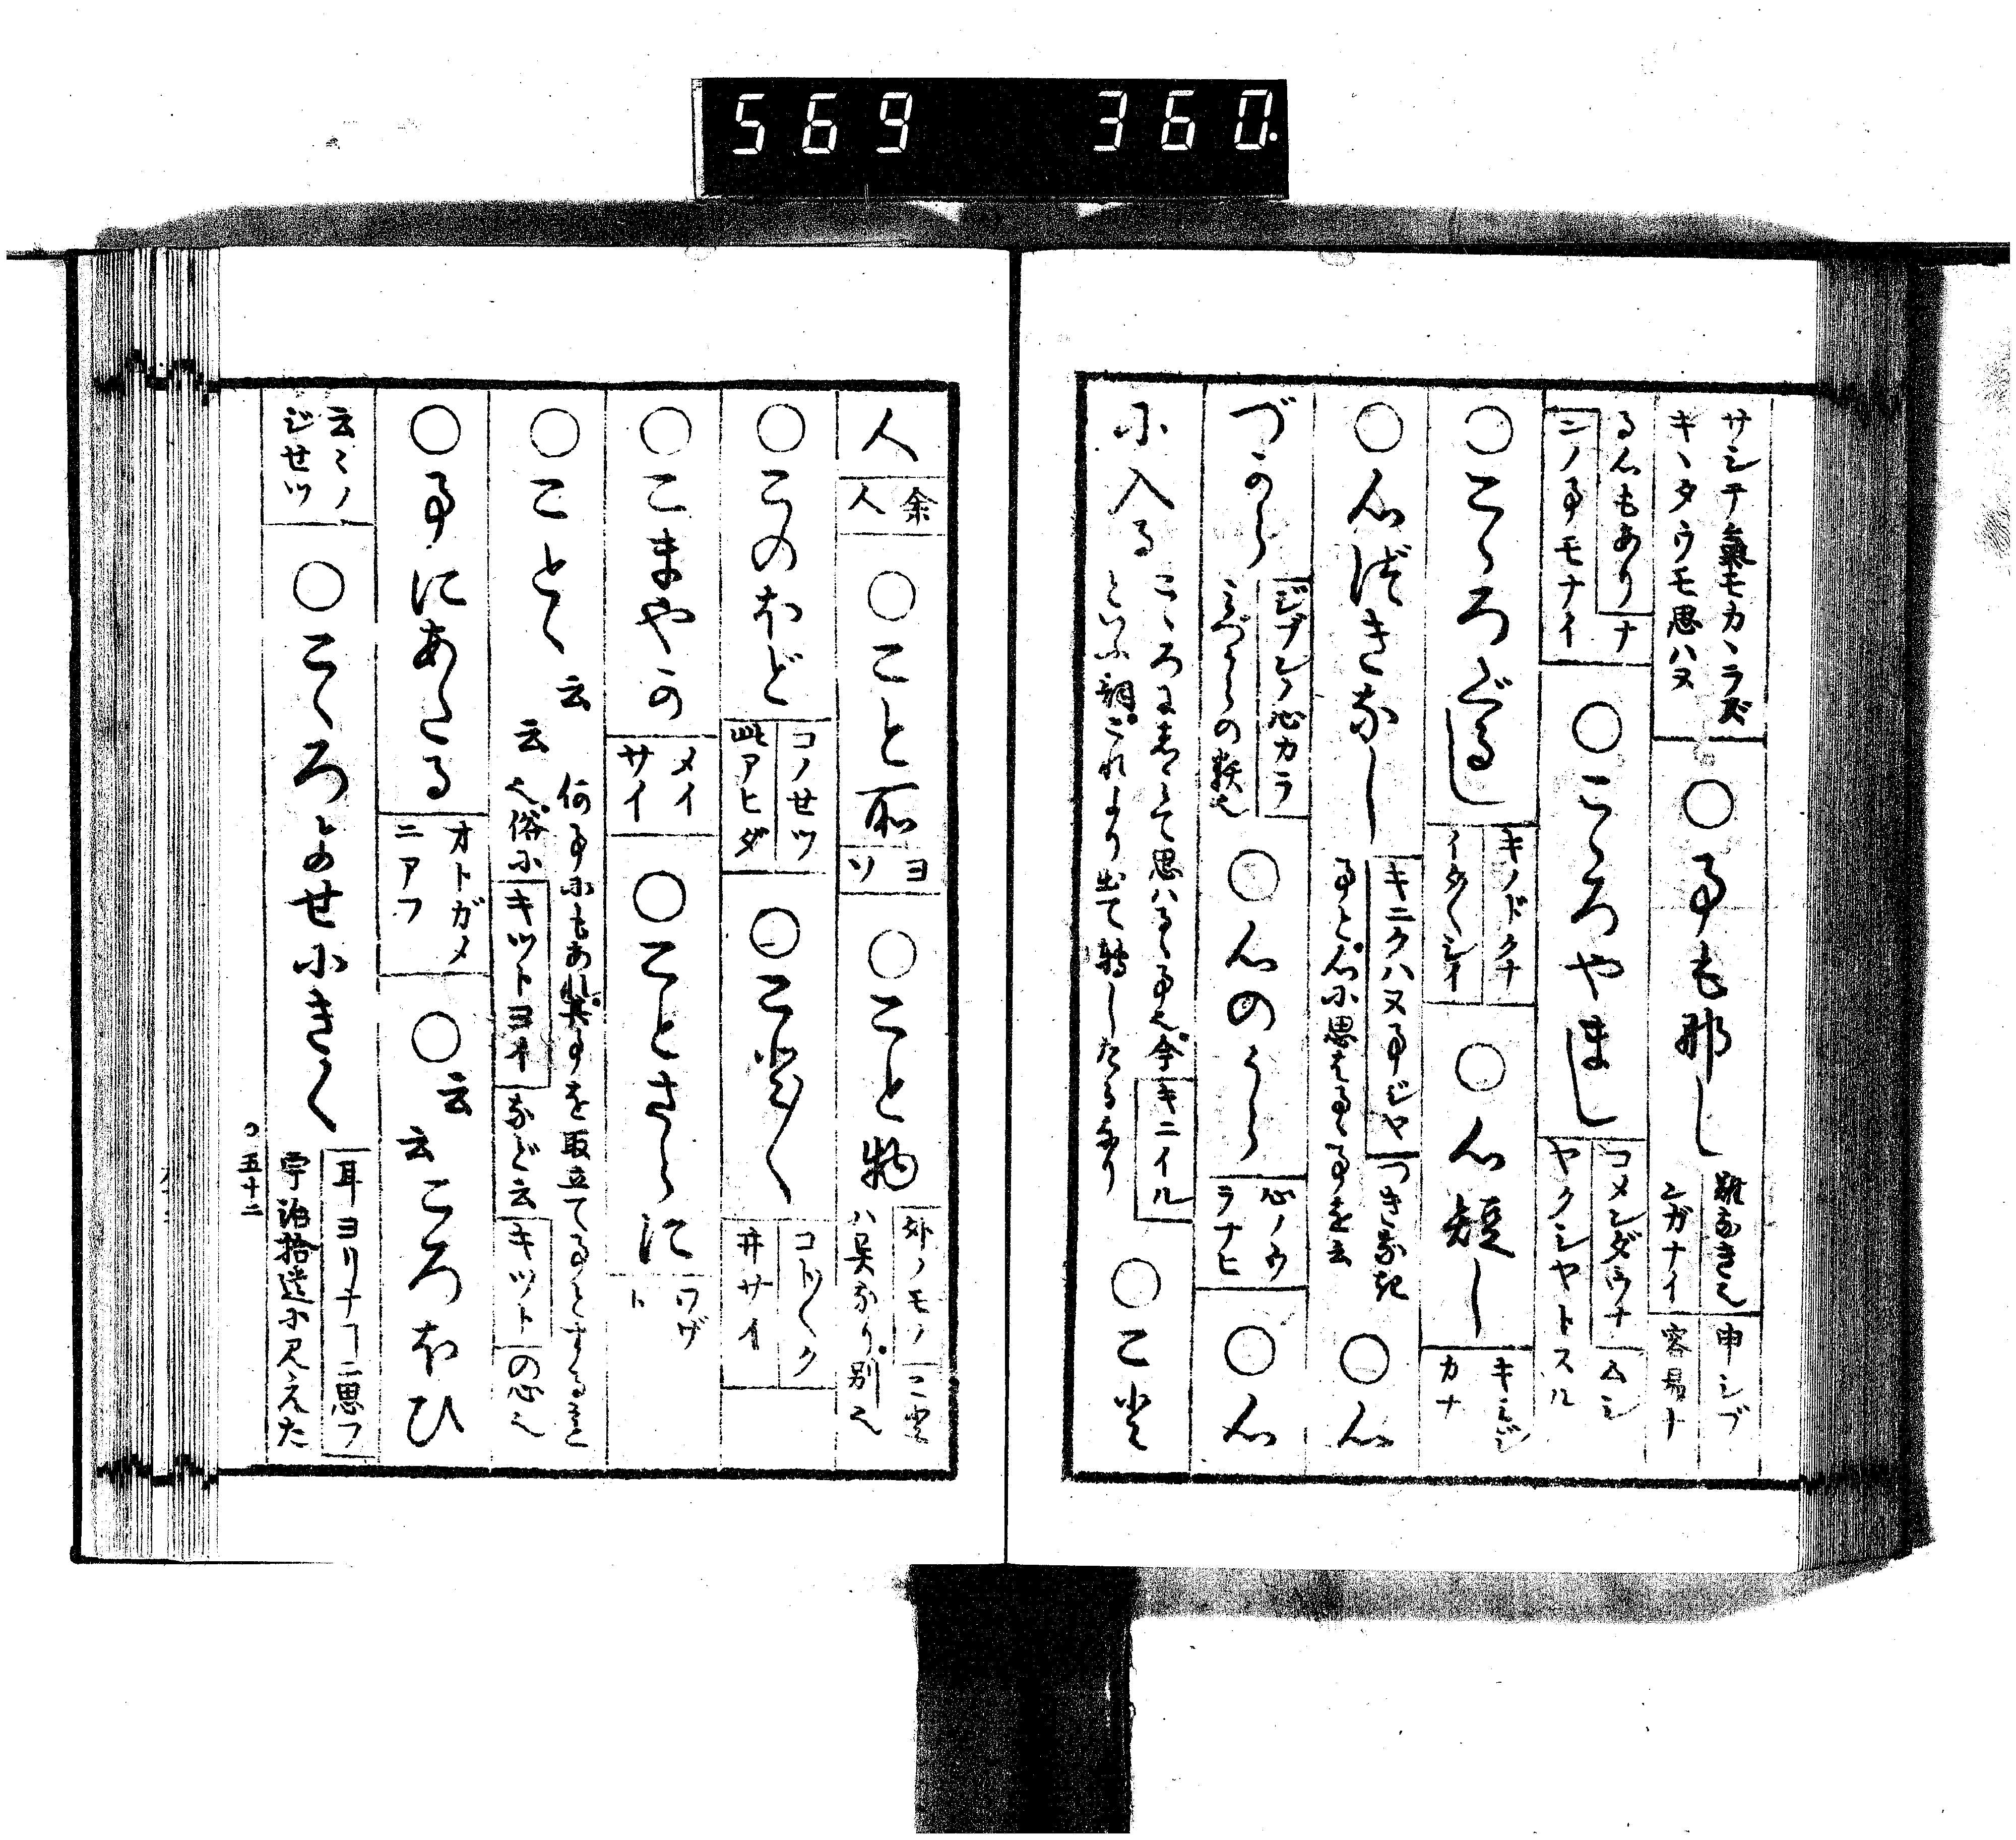 569 360.
サシテ氣モカヽラズ
キヽタウモ思ハヌ
○事も那し
難なき也
シガナイ
申シブ
容易ナ
る心もあり
ナ
ニノ事モナイ
○こゝろやまし
コメンダウナ
ムシ
ヤクシヤトスル
○こゝろぐるし
キノドクナ
イタ〱シイ
○心短し
キミジ
カナ
○心づきなし
キニクハヌ事ジヤ
つきなき
事と心に思はるゝ事を云
○心
づから
ジブンノ心カラ
みづからの類也
○心のうら
心ノウ
ラナヒ
○心
に入る
こゝろにしみて思はるゝ事也今
キニイル
といふ詞これより出て物したるなり
○こと
人
余
人
○こと所
ヨ
ソ
○こと物
外ノモノ
こと
ハ異なり別也
○このほど
コノセツ
此アヒダ
○こと〲く
コト〲ク
井サイ
○こまやか
メイ
サイ
○ことさらに
ワザ
ト
○こと〱
云
云
何事にもあれ其事を取立てことゝするを
也俗に
キツトヨイ
など云
キツト
の心也
○事にあたる
オトガメ
ニアフ
○云
云ころほひ
云〻ノ
じせツ
○こゝろよせにきく
耳ヨリナヿニ思フ
宇治拾遺に見えた
○五十二